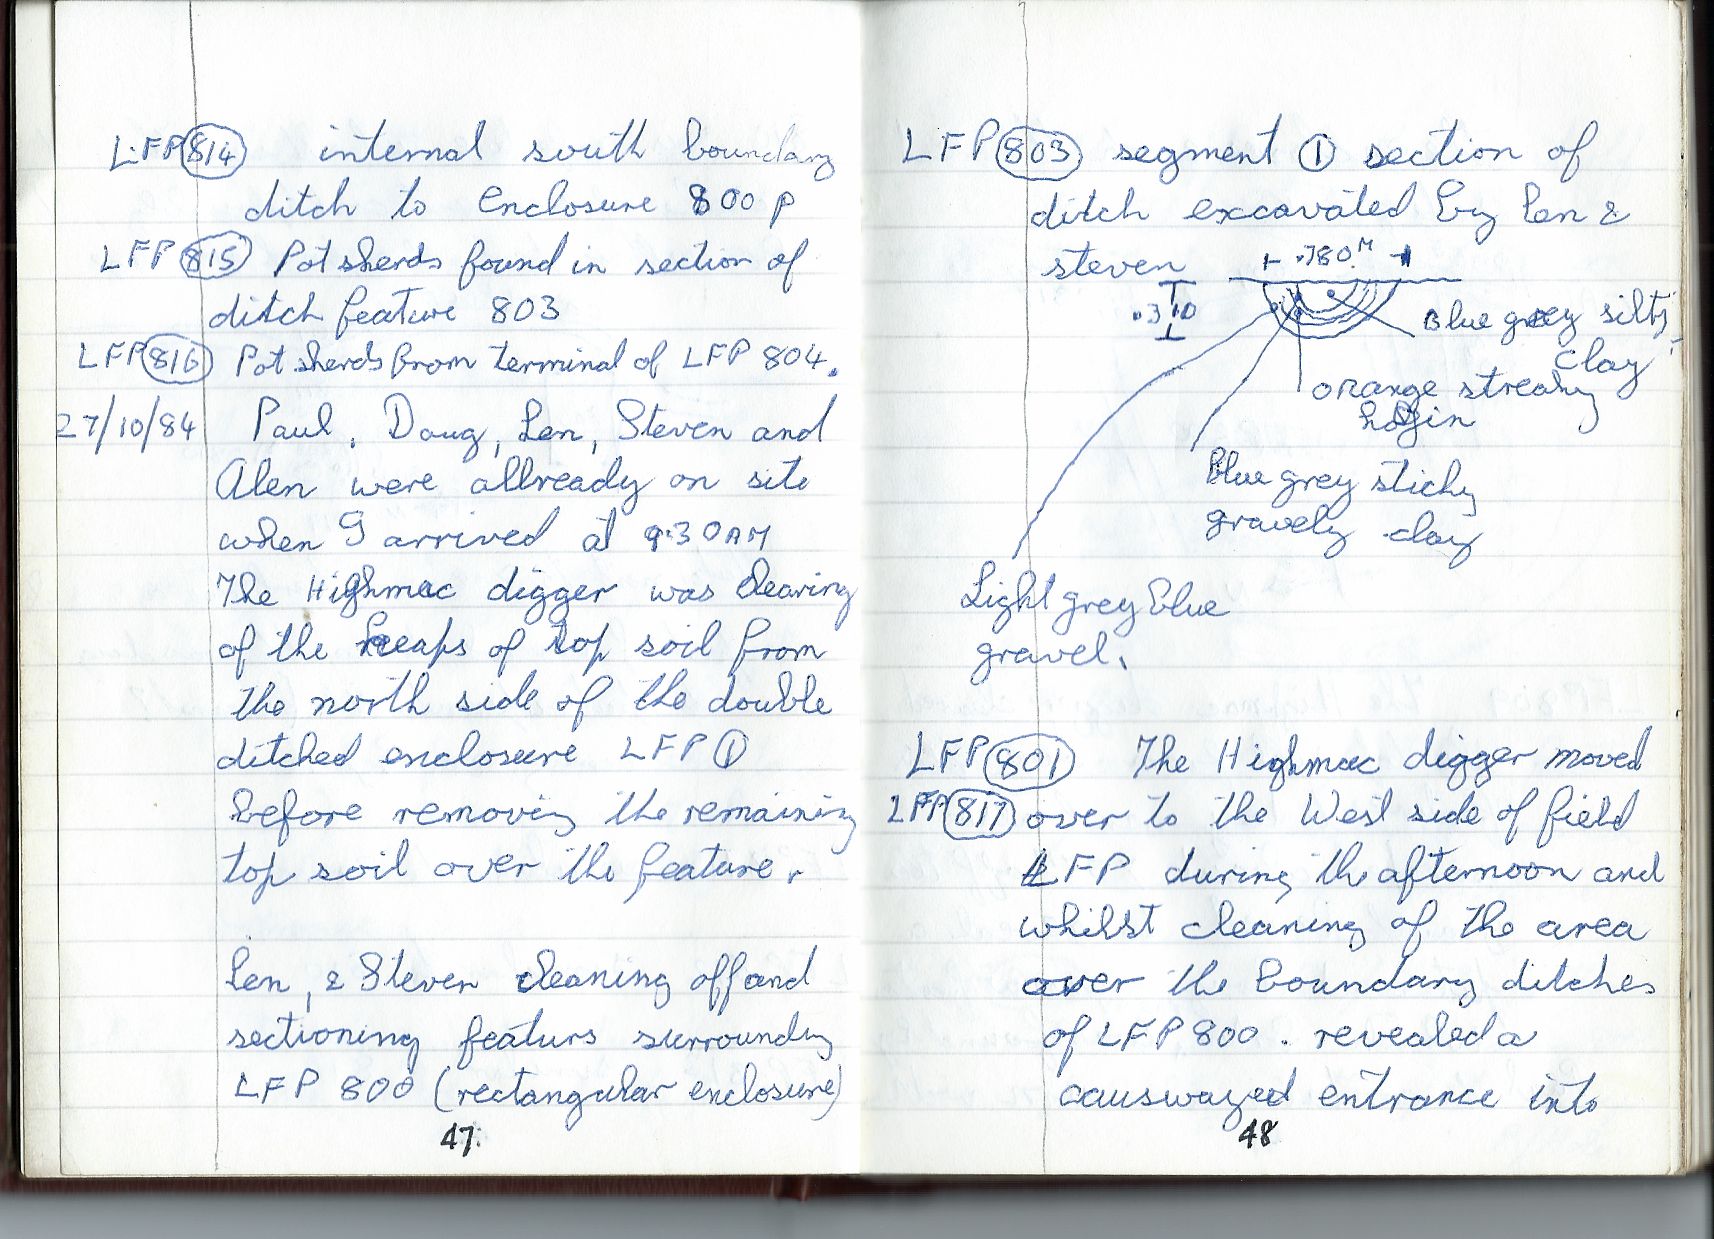 LFP 814 internal south boundary
ditch to enclosure 800 p
LFP 815 Pot sherds found in section of
ditch feature 803
LFP 816 Pot sherds from terminal of LFP 804.
27/10/84 Paul, Doug, Len, Steven and
Alen were allready on site
when I arrived at 9.30 AM
The Highmac digger was clearing
of the heaps of top soil from
the north side of the double
ditched enclosure LFP ①
before removing the remaining
top soil over the feature.
Len, & Steven cleaning off and
sectioning featurs surrounding
LFP 800 (rectangular enclosure)
47.
LFP 803 segment ① section of
ditch excavated by Len &
steven .780 M
.310
Blue grey silty
clay
orange streaky
Blue grey sticky
gravely clay
Light grey blue
gravel.
LFP 801 The Highmac digger moved
LFP 817 over to the West side of field
LFP during the afternoon and
whilst cleaning of the area
over the boundary ditches
of LFP 800. revealed a
causwayed entrance into
48